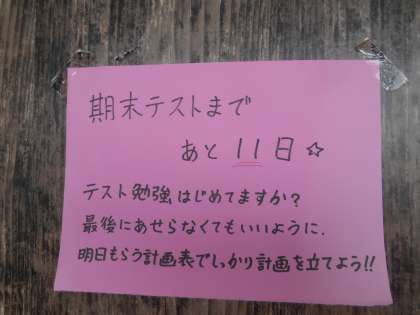 期末テストまで
あと 11日☆
テスト勉強はじめてますか?
最後にあせらなくてもいいように.
明日もらう計画表でしっかり計画を立てよう!!